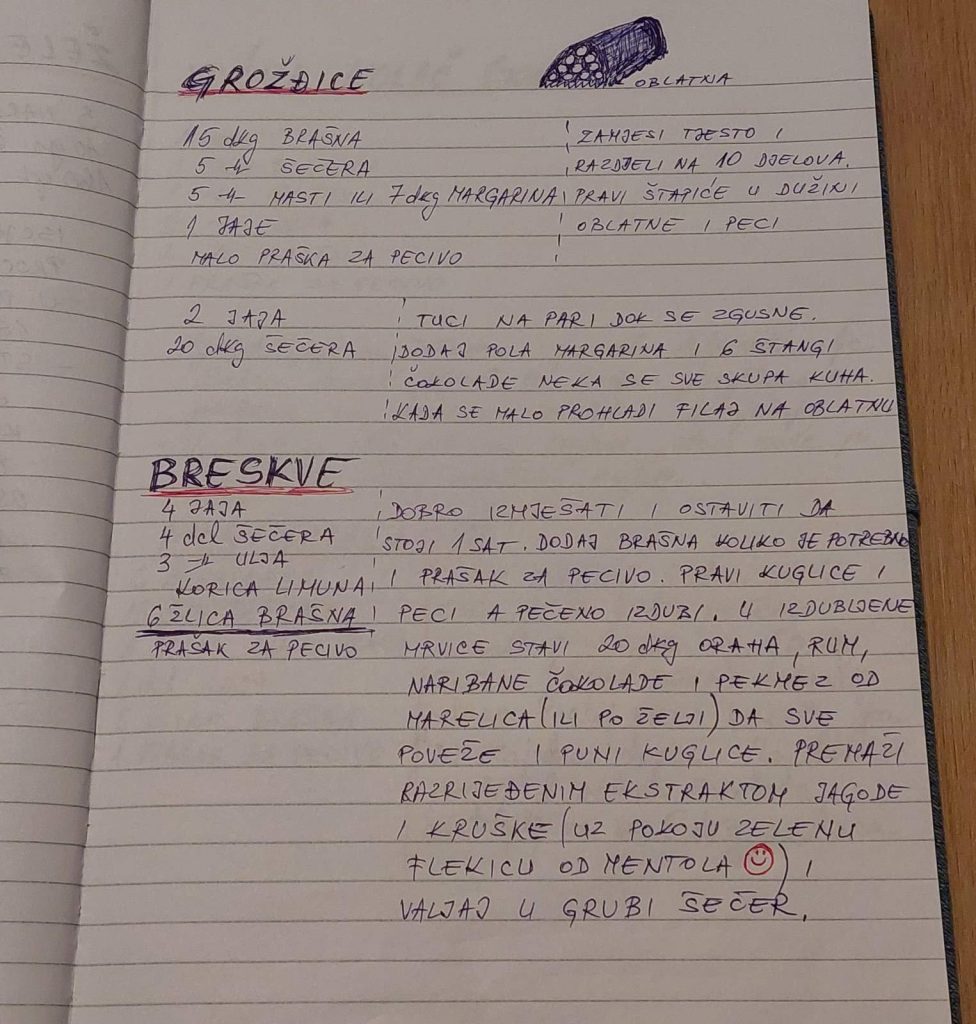 GROŽĐICE
OBLATNA
15 dkg BRAŠNA
5 -"- ŠEČERA
5 -"- MASTI ILI 7 dkg MARGARINA
1 JAJE
MALO PRAŠKA ZA PECIVO
ZAMJESI TJESTO I
RAZDJELI NA 10 DJELOVA.
PRAVI ŠTAPIĆE U DUŽINI
OBLATNE I PECI
2 JAJA
20 dkg ŠEČERA
TUCI NA PARI DOK SE ZGUSNE.
DODAJ POLA MARGARINA I 6 ŠTANGI
ČOKOLADE NEKA SE SVE SKUPA KUHA.
KADA SE MALO PROHLADI FILAJ NA OBLATNU
BRESKVE
4 JAJA
4 dcl ŠEČERA
3 -"- ULJA
KORICA LIMUNA
6 ŽLICA BRAŠNA
PRAŠAK ZA PECIVO
DOBRO IZMJEŠATI I OSTAVITI DA
STOJI 1 SAT. DODAJ BRAŠNA KOLIKO JE POTREBNO
I PRAŠAK ZA PECIVO. PRAVI KUGLICE I
PECI A PEČENO IZDUBI. U IZDUBLJENE
MRVICE STAVI 20 dkg ORAHA, RUM,
NARIBANE ČOKOLADE I PEKMEZ OD
MARELICA (ILI PO ŽELJI) DA SVE
POVEŽE I PUNI KUGLICE. PREMAŽI
RAZRIJEĐENIM EKSTRAKTOM JAGODE
I KRUŠKE (UZ POKOJU ZELENU
FLEKICU OD MENTOLA ☺) I
VALJAJ U GRUBI ŠEČER.